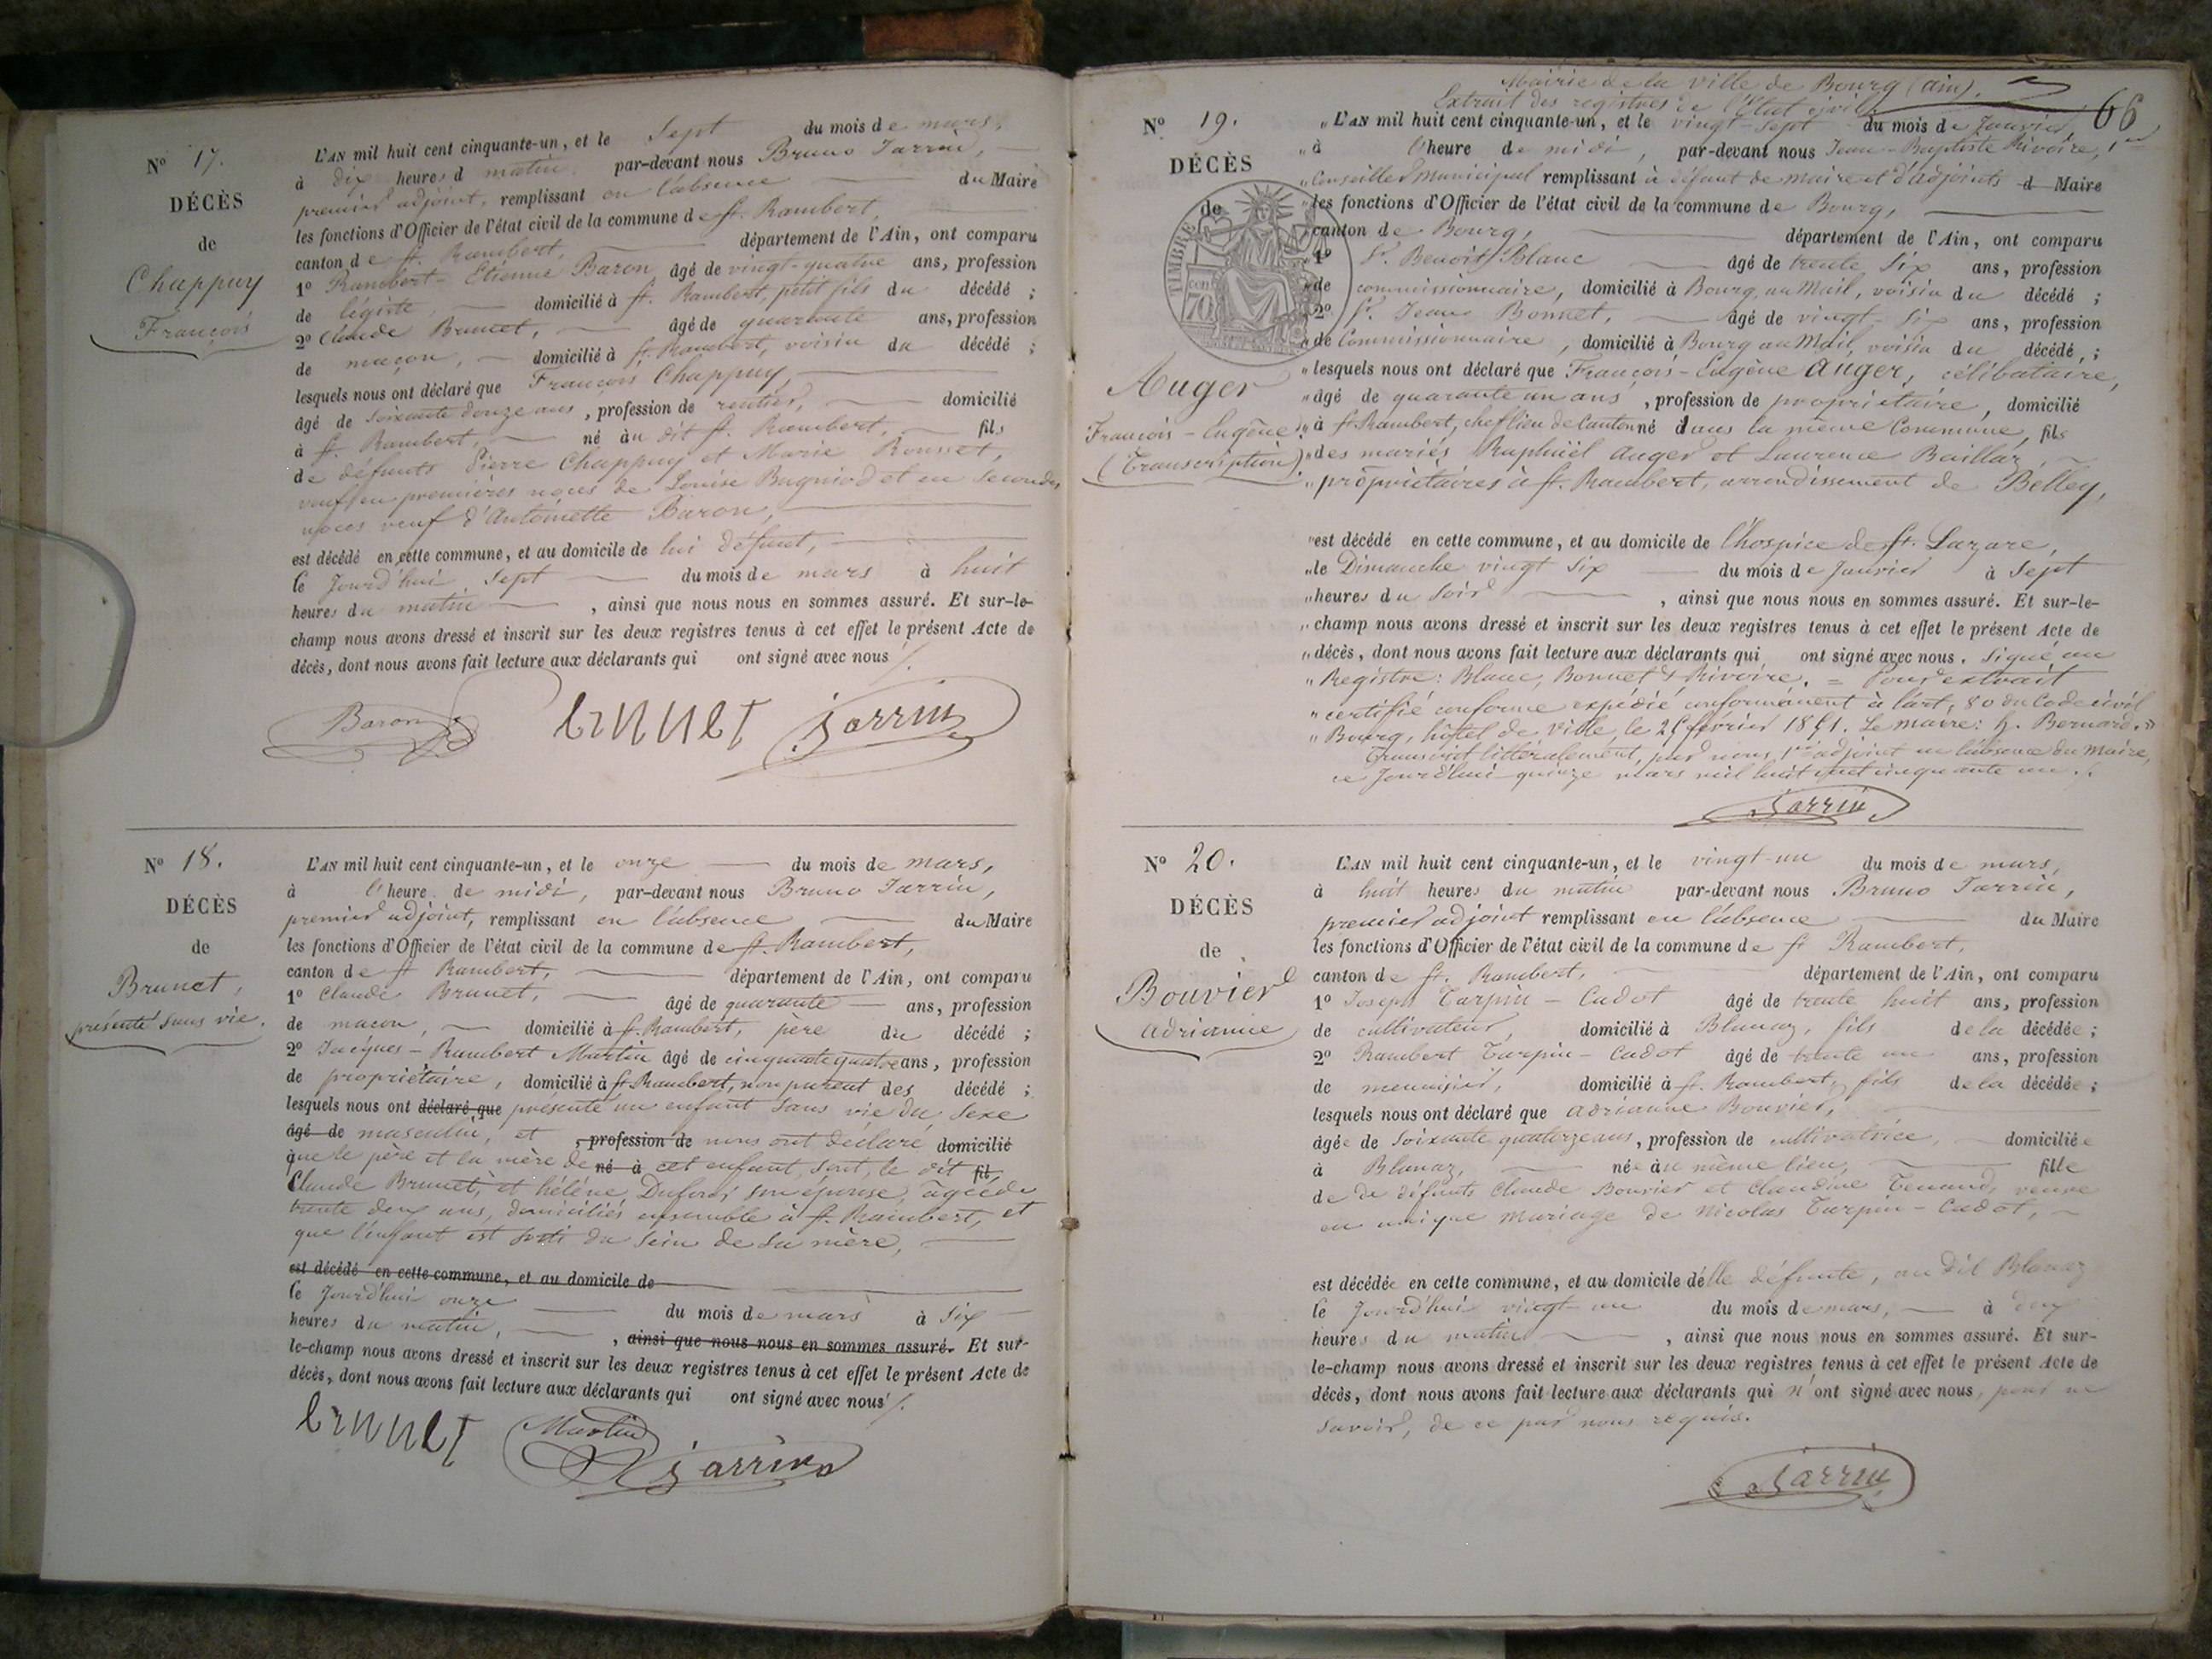 N° 17.
DÉCÈS
de
Chappuy
François
L'AN mil huit cent cinquante-un, et le Sept du mois de mars,
à dix heures d matin par-devant nous Bruno Jarrin,
premier adjoint, remplissant en l'absence du Maire
les fonctions d'Officier de l'état civil de la commune de St. Rambert,
canton de St. Rambert, département de l'Ain, ont comparu
1° Rambert-Etienne Baron âgé de vingt-quatre ans, profession
de légiste, domicilié à St. Rambert, petit fils du décédé ;
2° Claude Brunet, âgé de quarante ans, profession
de maçon, domicilié à St. Rambert, voisin du décédé ;
lesquels nous ont déclaré que François Chappuy,
âgé de soixante douze ans, profession de rentier, domicilié
à St. Rambert, né au dit St. Rambert, fils
de défunts Pierre Chappuy et Marie Rousset,
veuf en premières noces de Louise Bugniod et en secondes
noces veuf d'Antoinette Baron,
est décédé en cette commune, et au domicile de lui défunt,
le Jourd'hui Sept du mois de mars à huit
heures du matin, ainsi que nous nous en sommes assuré. Et sur-le-
champ nous avons dressé et inscrit sur les deux registres tenus à cet effet le présent Acte de
décès, dont nous avons fait lecture aux déclarants qui ont signé avec nous /.
Baron brunet Jarrin
N° 18.
DÉCÈS
de
Brunet,
présenté sans vie.
L'AN mil huit cent cinquante-un, et le onze du mois de mars,
à l'heure de midi, par-devant nous Bruno Jarrin,
premier adjoint, remplissant en l'absence du Maire
les fonctions d'Officier de l'état civil de la commune de St. Rambert,
canton de St Rambert, département de l'Ain, ont comparu
1° Claude Brunet, âgé de quarante ans, profession
de maçon, domicilié à St. Rambert, père du décédé ;
2° Jacques-Rambert Martin âgé de cinquante quatre ans, profession
de propriétaire, domicilié à St Rambert, non parent des décédé ;
lesquels nous ont déclaré que présenté un enfant sans vie du sexe
âgé de masculin, et , profession de nous ont déclaré domicilié
que le père et la mère de né à cet enfant, sont, le dit fil
Claude Brunet, et hélène Dufour son épouse, agée de
trente deux ans, domiciliés ensemble à St. Rambert, et
que l'enfant est sorti du sein de sa mère,
est décédé en cette commune, et au domicile de
le Jourd'hui onze du mois de mars à Six
heures du matin, , ainsi que nous nous en sommes assuré. Et sur-
le-champ nous avons dressé et inscrit sur les deux registres tenus à cet effet le présent Acte de
décès, dont nous avons fait lecture aux déclarants qui ont signé avec nous /.
brunet Martin Jarrin
Mairie de la ville de Bourg (ain).
Extrait des registres de l'Etat civil
66
N° 19.
DÉCÈS
de
TIMBRE
70
Auger
François-Eugène
(Transcription)
" L'AN mil huit cent cinquante-un, et le vingt-sept du mois de Janvier,
" à l'heure de midi, par-devant nous Jean-Baptiste Rivoire, 1er
" Conseiller municipal remplissant à défaut de maire et d'adjoints d Maire
" les fonctions d'Officier de l'état civil de la commune de Bourg,
" canton de Bourg, département de l'Ain, ont comparu
" 1° Sr. Benoit Blanc âgé de trente six ans, profession
" de commissionnaire, domicilié à Bourg, au Mail, voisin du décédé ;
" 2° Sr. Jean Bonnet, âgé de vingt-six ans, profession
" de Commissionnaire, domicilié à Bourg au Mail, voisin du décédé, ;
" lesquels nous ont déclaré que François-Eugène Auger, célibataire,
" âgé de quarante un ans, profession de propriétaire, domicilié
" à St Rambert, chef lieu de Canton né dans la même Commune, fils
" des mariés Raphaël Auger et Laurence Baillar,
" propriétaires à St. Rambert, arrondissement de Belley,
" est décédé en cette commune, et au domicile de l'hospice de St. Lazare,
" le Dimanche vingt six du mois de Janvier à Sept
" heures du Soir, ainsi que nous nous en sommes assuré. Et sur-le-
" champ nous avons dressé et inscrit sur les deux registres tenus à cet effet le présent Acte de
" décès, dont nous avons fait lecture aux déclarants qui ont signé avec nous. Signé au
" Registre : Blanc, Bonnet & Rivoire. = Pour extrait
" certifié conforme expédié conformément à l'art. 80 du Code civil
" Bourg, hôtel de ville, le 25 février 1851. Le maire : h. Bernard. »
Transcrit littéralement, par nous, 1er adjoint en l'absence du Maire,
ce Jourd'hui quinze mars mil huit cent cinquante un /.
Jarrin
N° 20.
DÉCÈS
de
Bouvier
adrianne
L'AN mil huit cent cinquante-un, et le vingt-un du mois de mars,
à huit heures du matin par-devant nous Bruno Jarrin,
premier adjoint remplissant en l'absence du Maire
les fonctions d'Officier de l'état civil de la commune de St Rambert,
canton de St. Rambert, département de l'Ain, ont comparu
1° Joseph Turpin-Cadot âgé de trente huit ans, profession
de cultivateur, domicilié à Blanaz, fils de la décédée ;
2° Rambert Turpin-Cadot âgé de trente un ans, profession
de menuisier, domicilié à St. Rambert, fils de la décédée ;
lesquels nous ont déclaré que adrianne Bouvier,
âgée de soixante quatorze ans, profession de cultivatrice, domiciliée
à Blanaz, née au même lieu, fille
de de défunts Claude Bouvier et Claudine Tenand, veuve
en unique mariage de Nicolas Turpin-Cadot,
est décédée en cette commune, et au domicile d'elle défunte, au Dit Blanaz
le Jourd'hui vingt-un du mois de mars, à deux
heures du matin, ainsi que nous nous en sommes assuré. Et sur-
le-champ nous avons dressé et inscrit sur les deux registres tenus à cet effet le présent Acte de
décès, dont nous avons fait lecture aux déclarants qui n'ont signé avec nous, pour ne
savoir, de ce par nous requis.
Jarrin